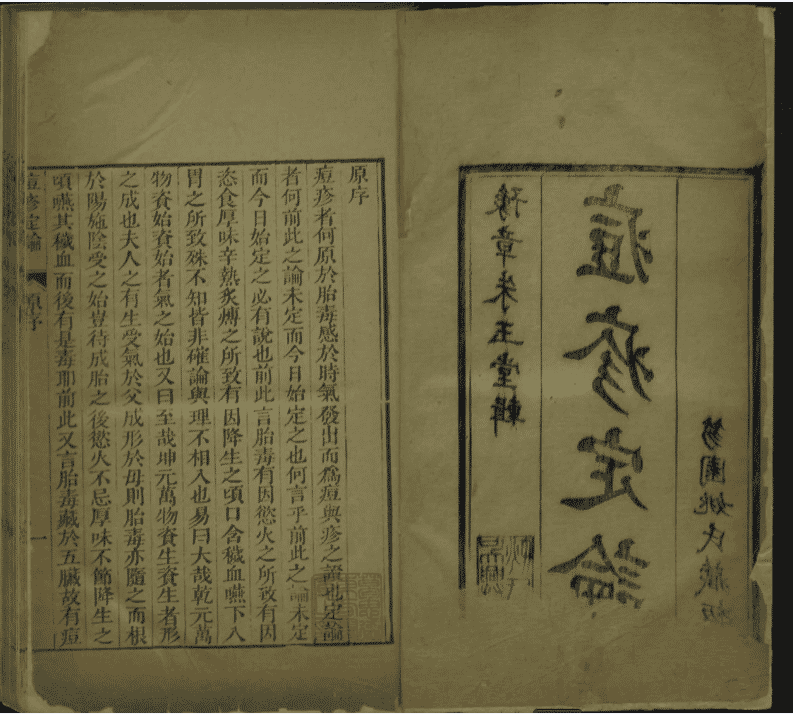 園姚氏藏板
痘疹定論
豫章朱玉堂輯
原序
痘疹者何原於胎毒感於時氣發出而爲痘與疹之證也定論
者何前此之論未定而今日始定之也何言乎前此之論未定
而今日始定之必有說也前此言胎毒有因慾火之所致有因
恣食厚味辛熱炙煿之所致有因降生之頃口含穢血嚥下入
胃之所致殊不知皆非確論與理不相入也易曰大哉乾元萬
物資始資始者氣之始也又曰至哉坤元萬物資生資生者形
之成也夫人之有生受氣於父成形於母則胎毒亦隨之而根
於陽施陰受之始豈待成胎之後慾火不忌厚味不節降生之
頃嚥其穢血而後有是毒耶前此又言胎毒藏於五臟故有痘
痘疹定論 原序 一